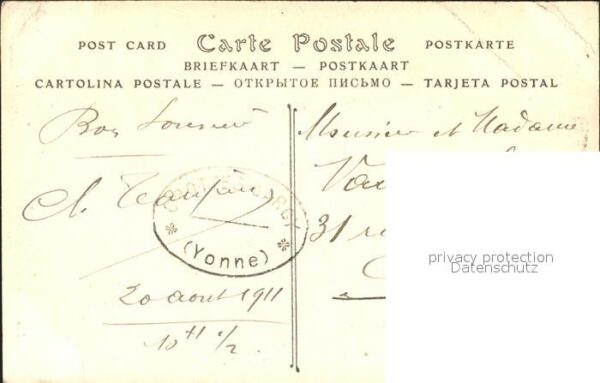 POST CARD Carte Postale POSTKARTE
BRIEFKAART — POSTKAART
CARTOLINA POSTALE — ОТКРЫТОЕ ПИСЬМО — TARJETA POSTAL
Bon Souvenir
Monsieur et Madame
31
(Yonne)
20 aout 1911
10 H 1/2
privacy protection
Datenschutz